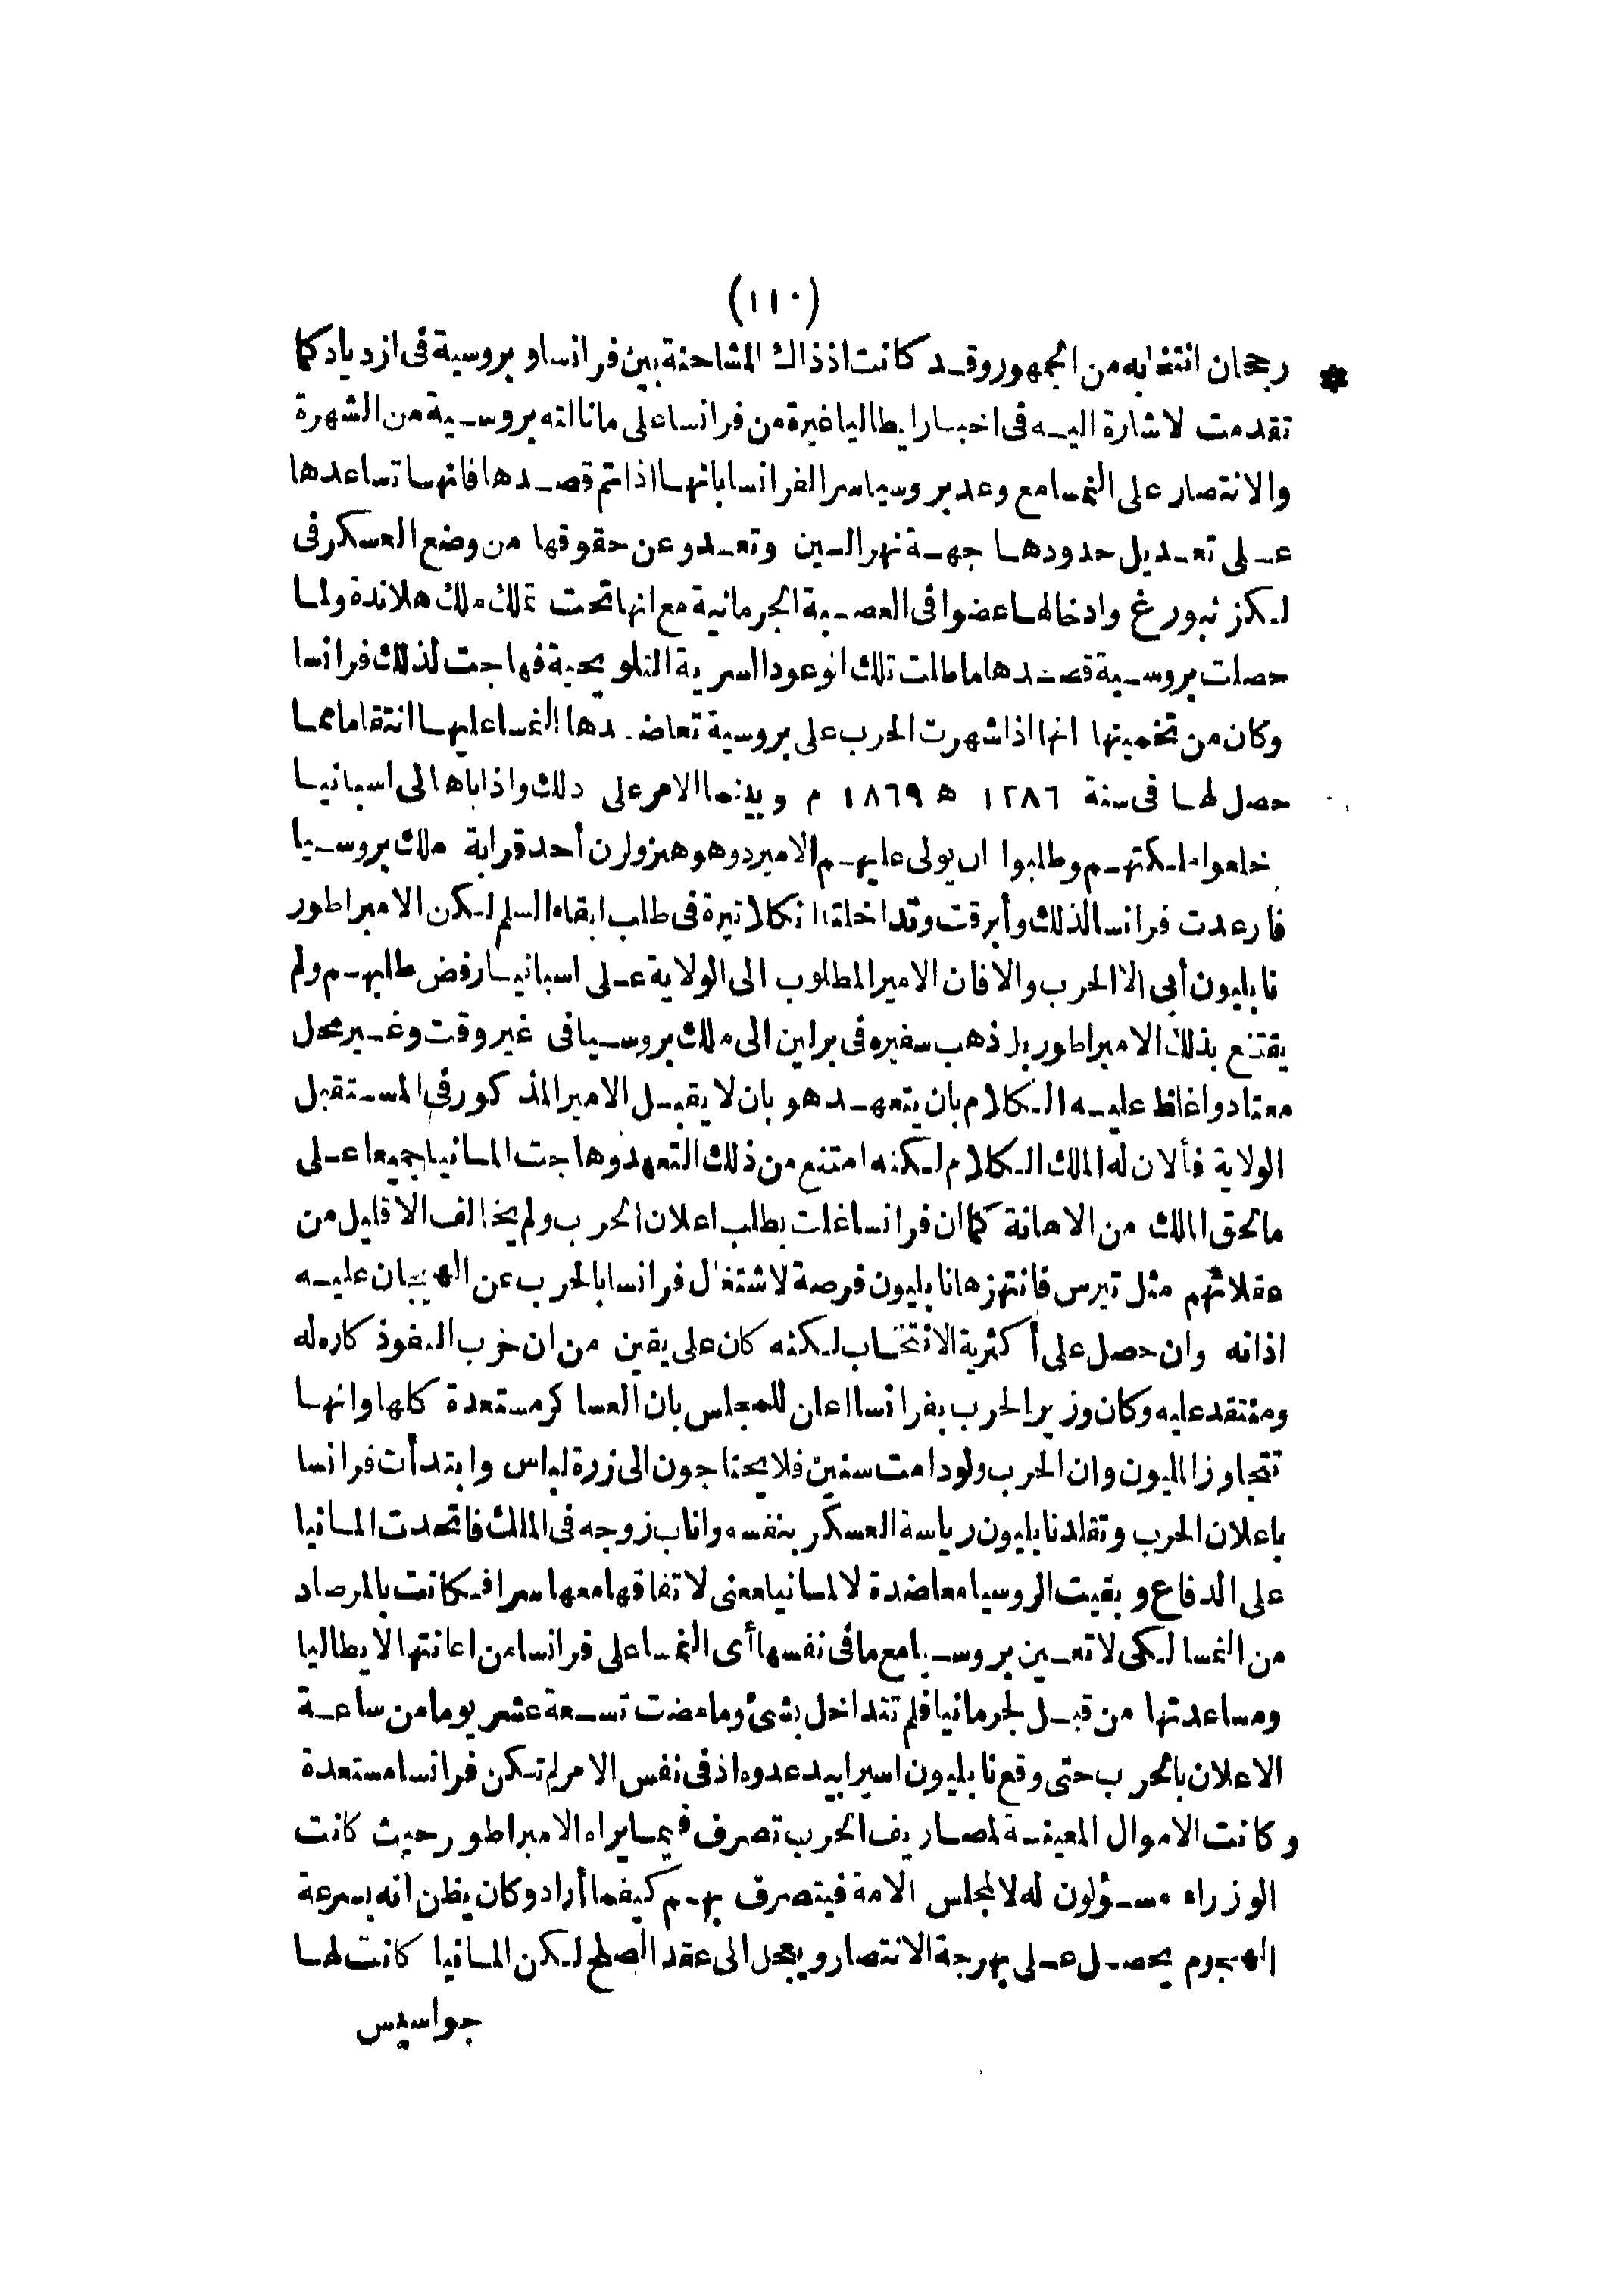 (١١٠)
رجحان انتخابه من الجمهور وقد كانت اذ ذاك المشاحنة بين فرانسا وبروسية فى ازدياد كما
تقدمت لاشارة اليه فى اخبار ايطاليا غيرة من فرانسا على ما نالته بروسية من الشهرة
والانتصار على النمسا مع وعد بروسيا سرا لفرانسا بانها اذا تم قصدها فانها تساعدها
على تعديل حدودها جهة نهر الرين وتعدو عن حقوقها من وضع العسكر فى
لكزنبورغ وادخالها عضوا فى العصبة الجرمانية مع انها تحت تملك ملك هلاندة ولما
حصلت بروسية قصدها ماطلت تلك الوعود السرية التلويحية فهاجت لذلك فرانسا
وكان من تخمينها انها اذا شهرت الحرب على بروسية تعاضدها النمسا عليها انتقاما مما
حصل لها فى سنة ١٢٨٦ ه ١٨٦٩ م وبينما الامر على ذلك واذا باهالى اسبانيا
خلعوا ملكتهم وطلبوا ان يولى عليهم الامير دوهوهنزولرن أحد قرابة ملك بروسيا
فارعدت فرانسا لذلك وأبرقت وتداخلت انكلاتيرة فى طلب ابقاء السلم لكن الامبراطور
نابليون أبى الا الحرب والا فان الامير المطلوب الى الولاية على اسبانيا رفض طلبهم ولم
يقتنع بذلك الامبراطور بل ذهب سفيره فى برلين الى ملك بروسيا فى غير وقت وغير محل
معتاد واغلظ عليه الكلام بان يتعهد هو بان لا يقبل الامير المذكور فى المستقبل
الولاية فألان له الملك الكلام لكنه امتنع من ذلك التعهد وهاجت المانيا جميعا على
ما لحق الملك من الاهانة كما ان فرانسا غلت بطلب اعلان الحرب ولم يخالف الا قليل من
عقلائهم مثل تيرس فانتهزها نابليون فرصة لاشتغال فرانسا بالحرب عن الهيجان عليه
اذ انه وان حصل على أكثرية الانتخاب لكنه كان على يقين من ان حزب النفوذ كاره له
ومنتقد عليه وكان وزير الحرب بفرانسا اعلن للمجلس بان العساكر مستعدة كلها وانها
تتجاوز المليون وان الحرب ولو دامت سنين فلا يحتاجون الى زرة لباس وابتدأت فرانسا
باعلان الحرب وتقلد نابليون رياسة العسكر بنفسه واناب زوجه فى الملك فاتحدت المانيا
على الدفاع وبقيت الروسيا معاضدة لالمانيا معنى لاتفاقها معها سرا فكانت بالمرصاد
من النمسا لكى لا تعين بروسيا مع ما فى نفسها أى النمسا على فرانسا من اعانتها لايطاليا
ومساعدتها من قبل لجرمانيا فلم تتداخل بشئ وما مضت تسعة عشر يوما من ساعة
الاعلان بالحرب حتى وقع نابليون اسيرا بيد عدوه اذ فى نفس الامر لم تكن فرانسا مستعدة
وكانت الاموال المعينة لمصاريف الحرب تصرف فيما يراه الامبراطور حيث كانت
الوزراء مسؤلون له لا لمجلس الامة فيتصرف بهم كيفما أراد وكان يظن انه بسرعة
الهجوم يحصل على بهرجة الانتصار ويعجل الى عقد الصلح لكن المانيا كانت لها
جواسيس